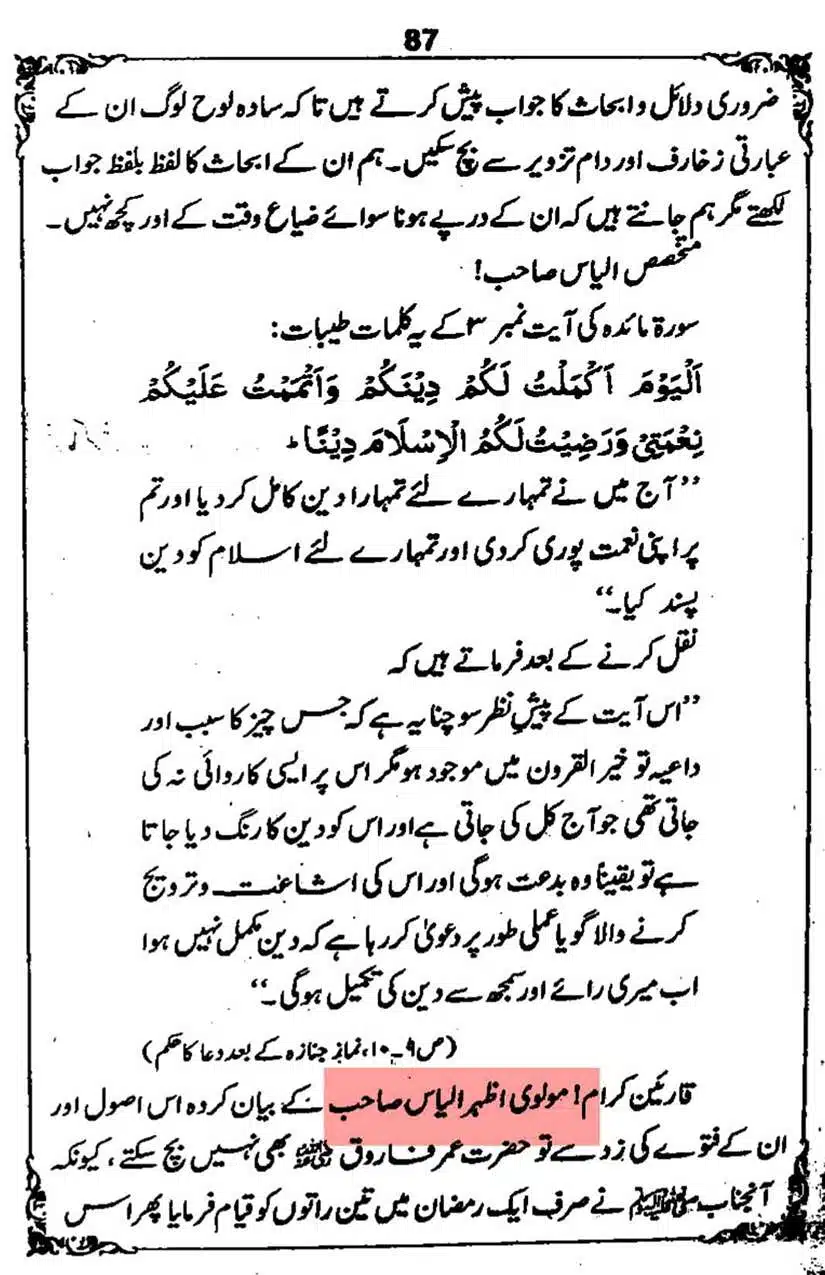 87
ضروری دلائل و ابحاث کا جواب پیش کرتے ہیں تاکہ سادہ لوح لوگ ان کے
عبارتی زخارف اور دام تزویر سے بچ سکیں۔ ہم ان کے ابحاث کا لفظ بلفظ جواب
لکھتے مگر ہم جانتے ہیں کہ ان کے درپے ہونا سوائے ضیاع وقت کے اور کچھ نہیں۔
متخصص الیاس صاحب!
سورۃ مائدہ کی آیت نمبر ۳ کے یہ کلمات طیبات:
اَلْیَوْمَ اَکْمَلْتُ لَکُمْ دِیْنَکُمْ وَاَتْمَمْتُ عَلَیْکُمْ
نِعْمَتِیْ وَرَضِیْتُ لَکُمُ الْاِسْلَامَ دِیْنًا ط
”آج میں نے تمہارے لئے تمہارا دین کامل کر دیا اور تم
پر اپنی نعمت پوری کر دی اور تمہارے لئے اسلام کو دین
پسند کیا۔“
نقل کرنے کے بعد فرماتے ہیں کہ
”اس آیت کے پیشِ نظر سوچنا یہ ہے کہ جس چیز کا سبب اور
داعیہ تو خیر القرون میں موجود ہو مگر اس پر ایسی کاروائی نہ کی
جاتی تھی جو آج کل کی جاتی ہے اور اس کو دین کا رنگ دیا جاتا
ہے تو یقیناً وہ بدعت ہوگی اور اس کی اشاعت و ترویج
کرنے والا گویا عملی طور پر دعویٰ کر رہا ہے کہ دین مکمل نہیں ہوا
اب میری رائے اور سمجھ سے دین کی تکمیل ہوگی۔“
(ص ۹۔۱۰، نمازِ جنازہ کے بعد دعا کا حکم)
قارئین کرام! مولوی اظہر الیاس صاحب کے بیان کردہ اس اصول اور
ان کے فتوے کی زد سے تو حضرت عمر فاروق رضی اللہ عنہ بھی نہیں بچ سکتے، کیونکہ
آنجناب صلی اللہ علیہ وسلم نے صرف ایک رمضان میں تین راتوں کو قیام فرمایا پھر اس